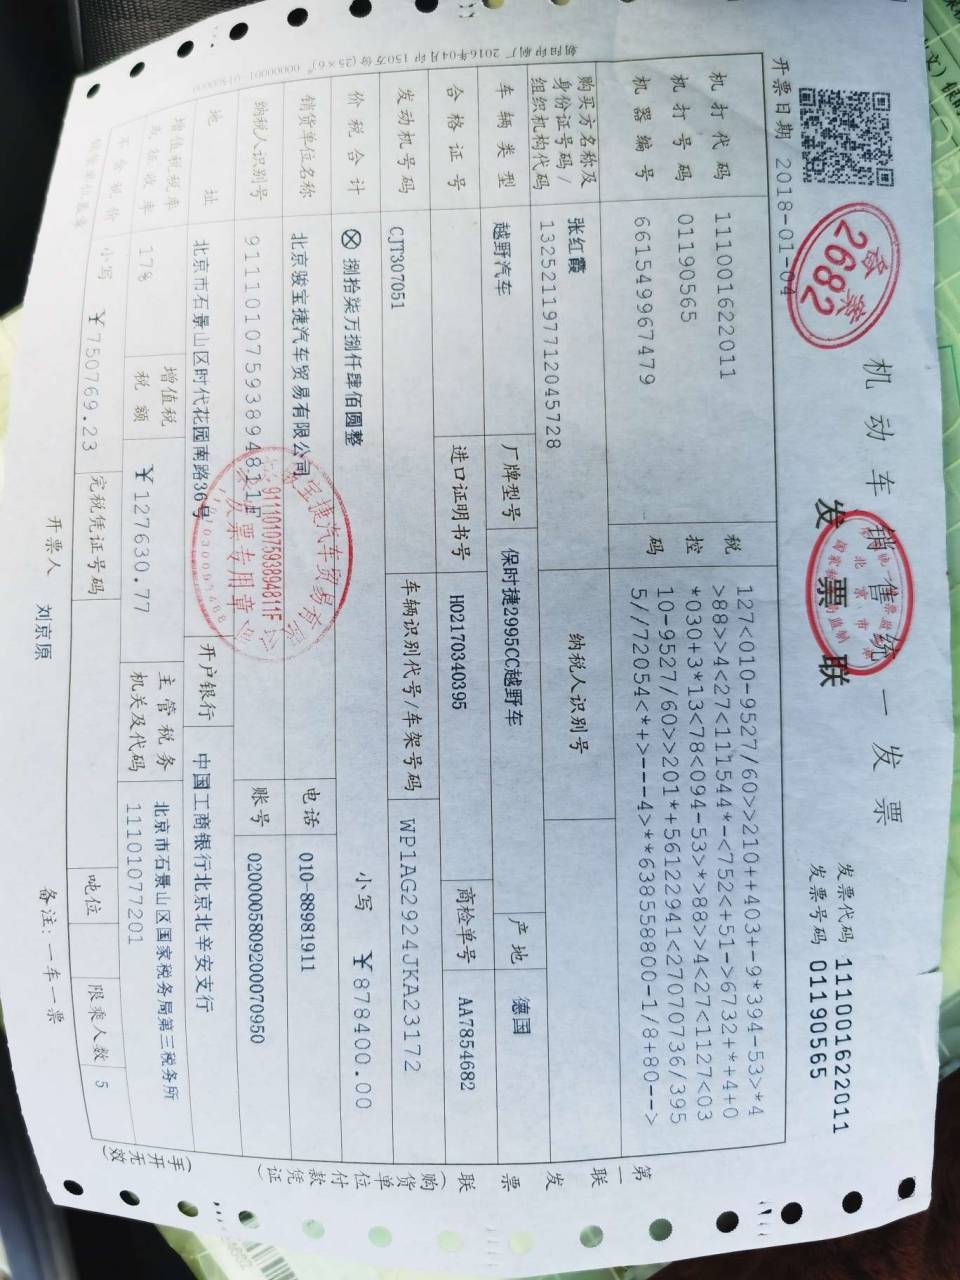 机动车销售统一发票
发票联
发票代码 111001622011
发票号码 01190565
开票日期 2018-01-04
备案
2682
机打代码 111001622011
机打号码 01190565
机器编号 661549967479
税控码
127<010-9527/60>>210++403+-9*394-53>*4
>88>>4<27<111544*-<752<+51->6732+*+4+0
*030+3*13<78<094-53>*>88>>4<27<1127<03
10-9527/60>>201*+56122941<27070736/395
5//72054<*+>---4>**638558800-1/8+80-->
购买方名称及身份证号码/组织机构代码
张红霞
132521197712045728
纳税人识别号
车辆类型 越野汽车 厂牌型号 保时捷2995CC越野车 产地 德国
合格证号 进口证明书号 H02170340395 商检单号 AA7854682
发动机号码 CJT307051 车辆识别代号/车架号码 WP1AG2924JKA23172
价税合计 ⊗ 捌拾柒万捌仟肆佰圆整 小写 ￥878400.00
销货单位名称 北京骏宝捷汽车贸易有限公司 电话 010-88981911
纳税人识别号 91110107593894811F 账号 0200005809200070950
地址 北京市石景山区时代花园南路36号 开户银行 中国工商银行北京北辛安支行
增值税税率或征收率 17% 增值税税额 ￥127630.77 主管税务机关及代码 北京市石景山区国家税务局第三税务所
11101077201
不含税价 小写 ￥750769.23 完税凭证号码 吨位 限乘人数 5
销货单位盖章 开票人 刘京原 备注：一车一票
第一联 发票联（购货单位付款凭证）
（手开无效）
宝捷汽车贸易有限公
91110107593894811F
发票专用章
朝阳印刷厂 2016年04月印 150万份(25×6)